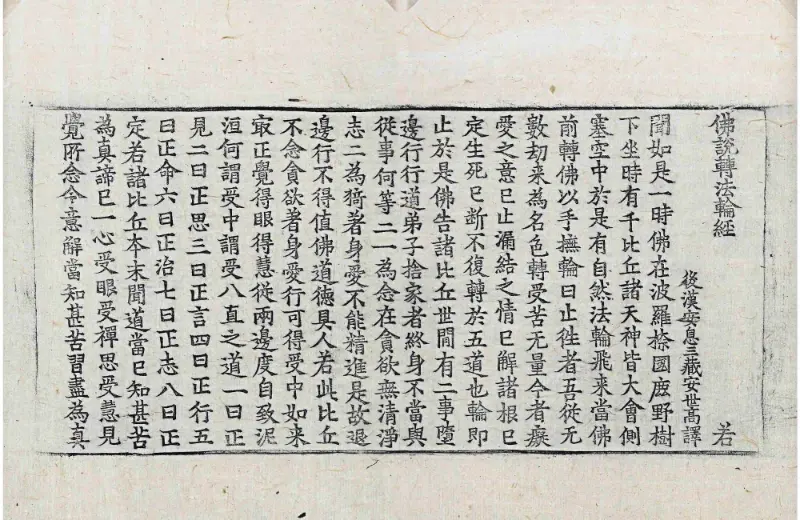 佛說轉法輪經 若
後漢安息三藏安世高譯
聞如是一時佛在波羅㮈國鹿野樹
下坐時有千比丘諸天神皆大會側
塞空中於是有自然法輪飛来當佛
前轉佛以手撫輪曰止徃者吾從无
數劫来為名色轉受苦无量今者癡
愛之意已止漏結之情已解諸根已
定生死已断不復轉於五道也輪即
止於是佛告諸比丘世間有二事墮
邊行行道弟子捨家者終身不當與
從事何等二一為念在貪欲無清淨
志二為猗著身愛不能精進是故退
邊行不得值佛道德具人若此比丘
不念貪欲著身愛行可得受中如来
㝡正覺得眼得慧從兩邊度自致泥
洹何謂受中謂受八直之道一曰正
見二曰正思三曰正言四曰正行五
曰正命六曰正治七曰正志八曰正
定若諸比丘本末聞道當已知甚苦
為真諦已一心受眼受禪思受慧見
覺所念令意解當知甚苦習盡為真